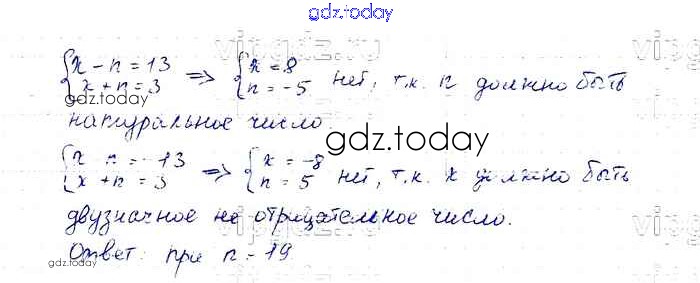 gdz.today
{x - n = 13
x + n = 3 => {x = 8
n = -5 нет, т.к. n должно быть
gdz.today
натуральное число
gdz.today
{x n = -13
x + n = 3 => {x = -8
n = 5 нет, т.к. x должно быть
двузначное не отрицательное число.
Ответ: при n = 19
gdz.today